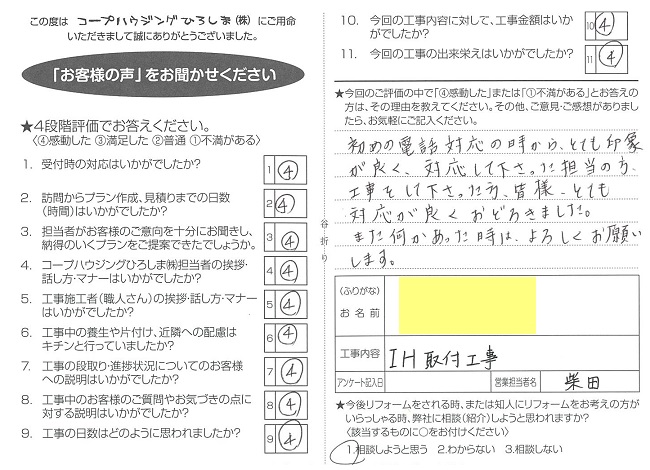 この度は コープハウジングひろしま(株) にご用命
いただきまして誠にありがとうございました。
「お客様の声」をお聞かせください
★4段階評価でお答えください。
〈④感動した ③満足した ②普通 ①不満がある〉
1. 受付時の対応はいかがでしたか?
1 4
2. 訪問からプラン作成、見積りまでの日数
(時間)はいかがでしたか?
2 4
3. 担当者がお客様のご意向を十分にお聞きし、
納得のいくプランをご提案できたでしょうか。
3 4
4. コープハウジングひろしま㈱担当者の挨拶・
話し方・マナーはいかがでしたか?
4 4
5. 工事施工者(職人さん)の挨拶・話し方・マナー
はいかがでしたか?
5 4
6. 工事中の養生や片付け、近隣への配慮は
キチンと行っていましたか?
6 4
7. 工事の段取り・進捗状況についてのお客様
への説明はいかがでしたか?
7 4
8. 工事中のお客様のご質問やお気づきの点に
対する説明はいかがでしたか?
8 4
9. 工事の日数はどのように思われましたか?
9 4
谷折り
10. 今回の工事内容に対して、工事金額はいか
がでしたか?
10 4
11. 今回の工事の出来栄えはいかがでしたか?
11 4
★今回のご評価の中で「④感動した」または「①不満がある」とお答えの
方は、その理由を教えてください。その他、ご意見・ご感想がありまし
たら、お気軽にご記入ください。
初めの電話対応の時から、とても印象
が良く、対応して下さった担当の方、
工事をして下さった方、皆様、とても
対応が良くおどろきました。
また何かあった時は、よろしくお願い
します。
(ふりがな)
お名前
工事内容 IH取付工事
アンケート記入日
営業担当者名 柴田
★今後リフォームをされる時、または知人にリフォームをお考えの方が
いらっしゃる時、弊社に相談(紹介)しようと思われますか?
〈該当するものに○をお付けください〉
1.相談しようと思う 2.わからない 3.相談しない